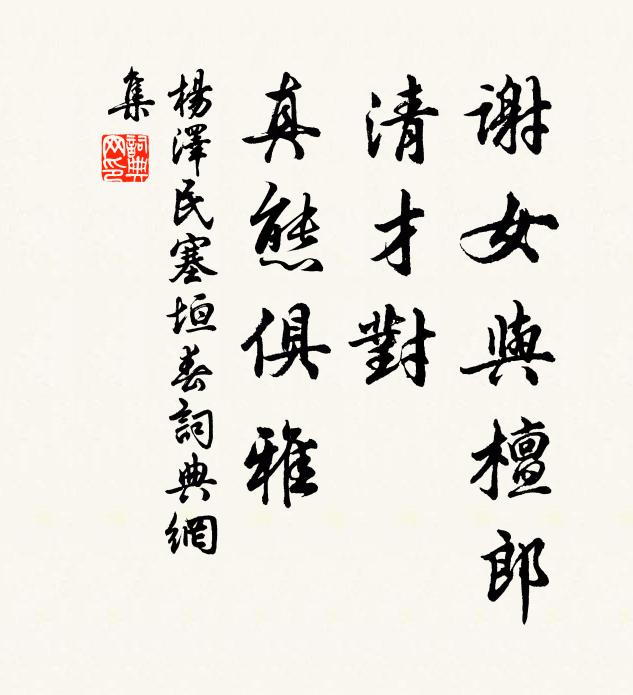 謝女與檀郎
清才對
真態俱雅
楊澤民塞垣春詞典網
集
詞典
网印